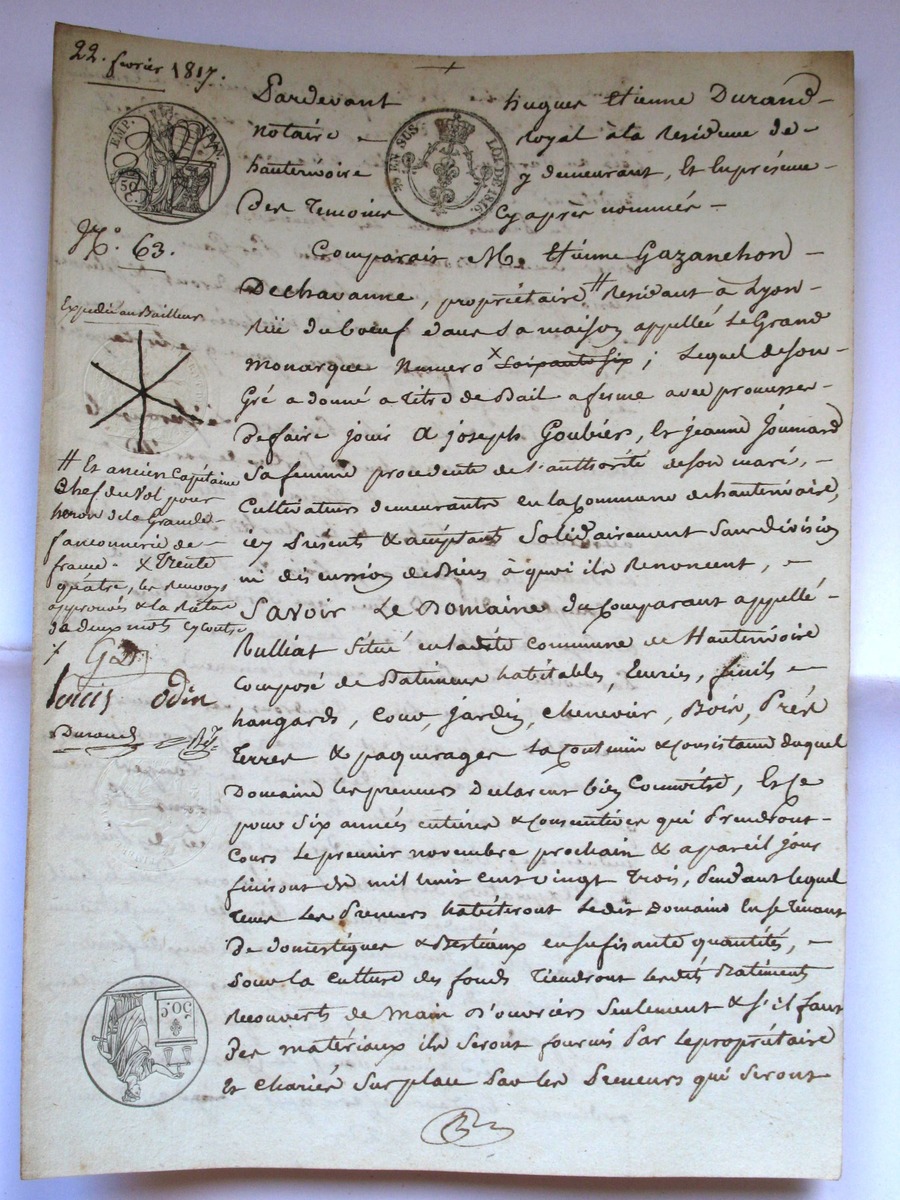 22. fevrier 1817.
Pardevant hugues Etienne Durand
notaire royal a la Residence de
hauterivoire y demeurant, Et En présence
Des Temoins Cy après nommés
EMP.
50 C.
EN SUS LOI DE 1816.
N.° 63.
Comparait M. Etienne Gazanchon
Dechavanne, propriétaire # Residant à Lyon
Rüe du bœuf dans Sa maison appellée Le Grand
monarque Numero x Soixante Six ; Lequel de Son
Gré a donné a Titre de Bail a ferme avec promesse
De faire jouir A joseph Goubier, Et jeanne Joumard
Sa femme procedente de l'authorité de Son mari,
Cultivateurs demeurants en la Commune d'hauterivoire,
icy Présents & acceptants Solidairement Sans division
ni discussion de Biens à quoi ils Renoncent,
Savoir Le Domaine du Comparant appellé
Rulliat Situé en ladite Commune de Hauterivoire
Composé de Batiments habitables, Ecuries, fenils
hangards, Cour, Jardin, Chenevier, Bois, Prés
Terres & paquerages La Contenüe & Consistance duquel
Domaine les preneurs Declarent bien Connoitre, Et Ce
pour Six années entières & Consecutives qui Prendront
Cours Le premier novembre prochain & a pareil jour
finiront de mil huit cent vingt Trois, Pendant lequel
Tems Les Preneurs habiteront Ledit Domaine En se Tenant
De domestiques & Bestiaux en sufisante quantités,
Pour la Culture des fonds Tiendront lesdits Batiments
Recouverts de Main d'ouvriers Seulement & S'il faut
Des matériaux ils Seront fournis Par Le propriétaire
Et Chariés Sur place Par les Preneurs qui Seront
Expedié au Bailleur
# Et ancien Capitaine
Chef du Vol pour
heron de la Grande
fauconnerie de
france. x Trente
quatre, les Renvoys
approuvés & la Rature
da deux mots cy contre
GD
louis odin
Durand
50 C.